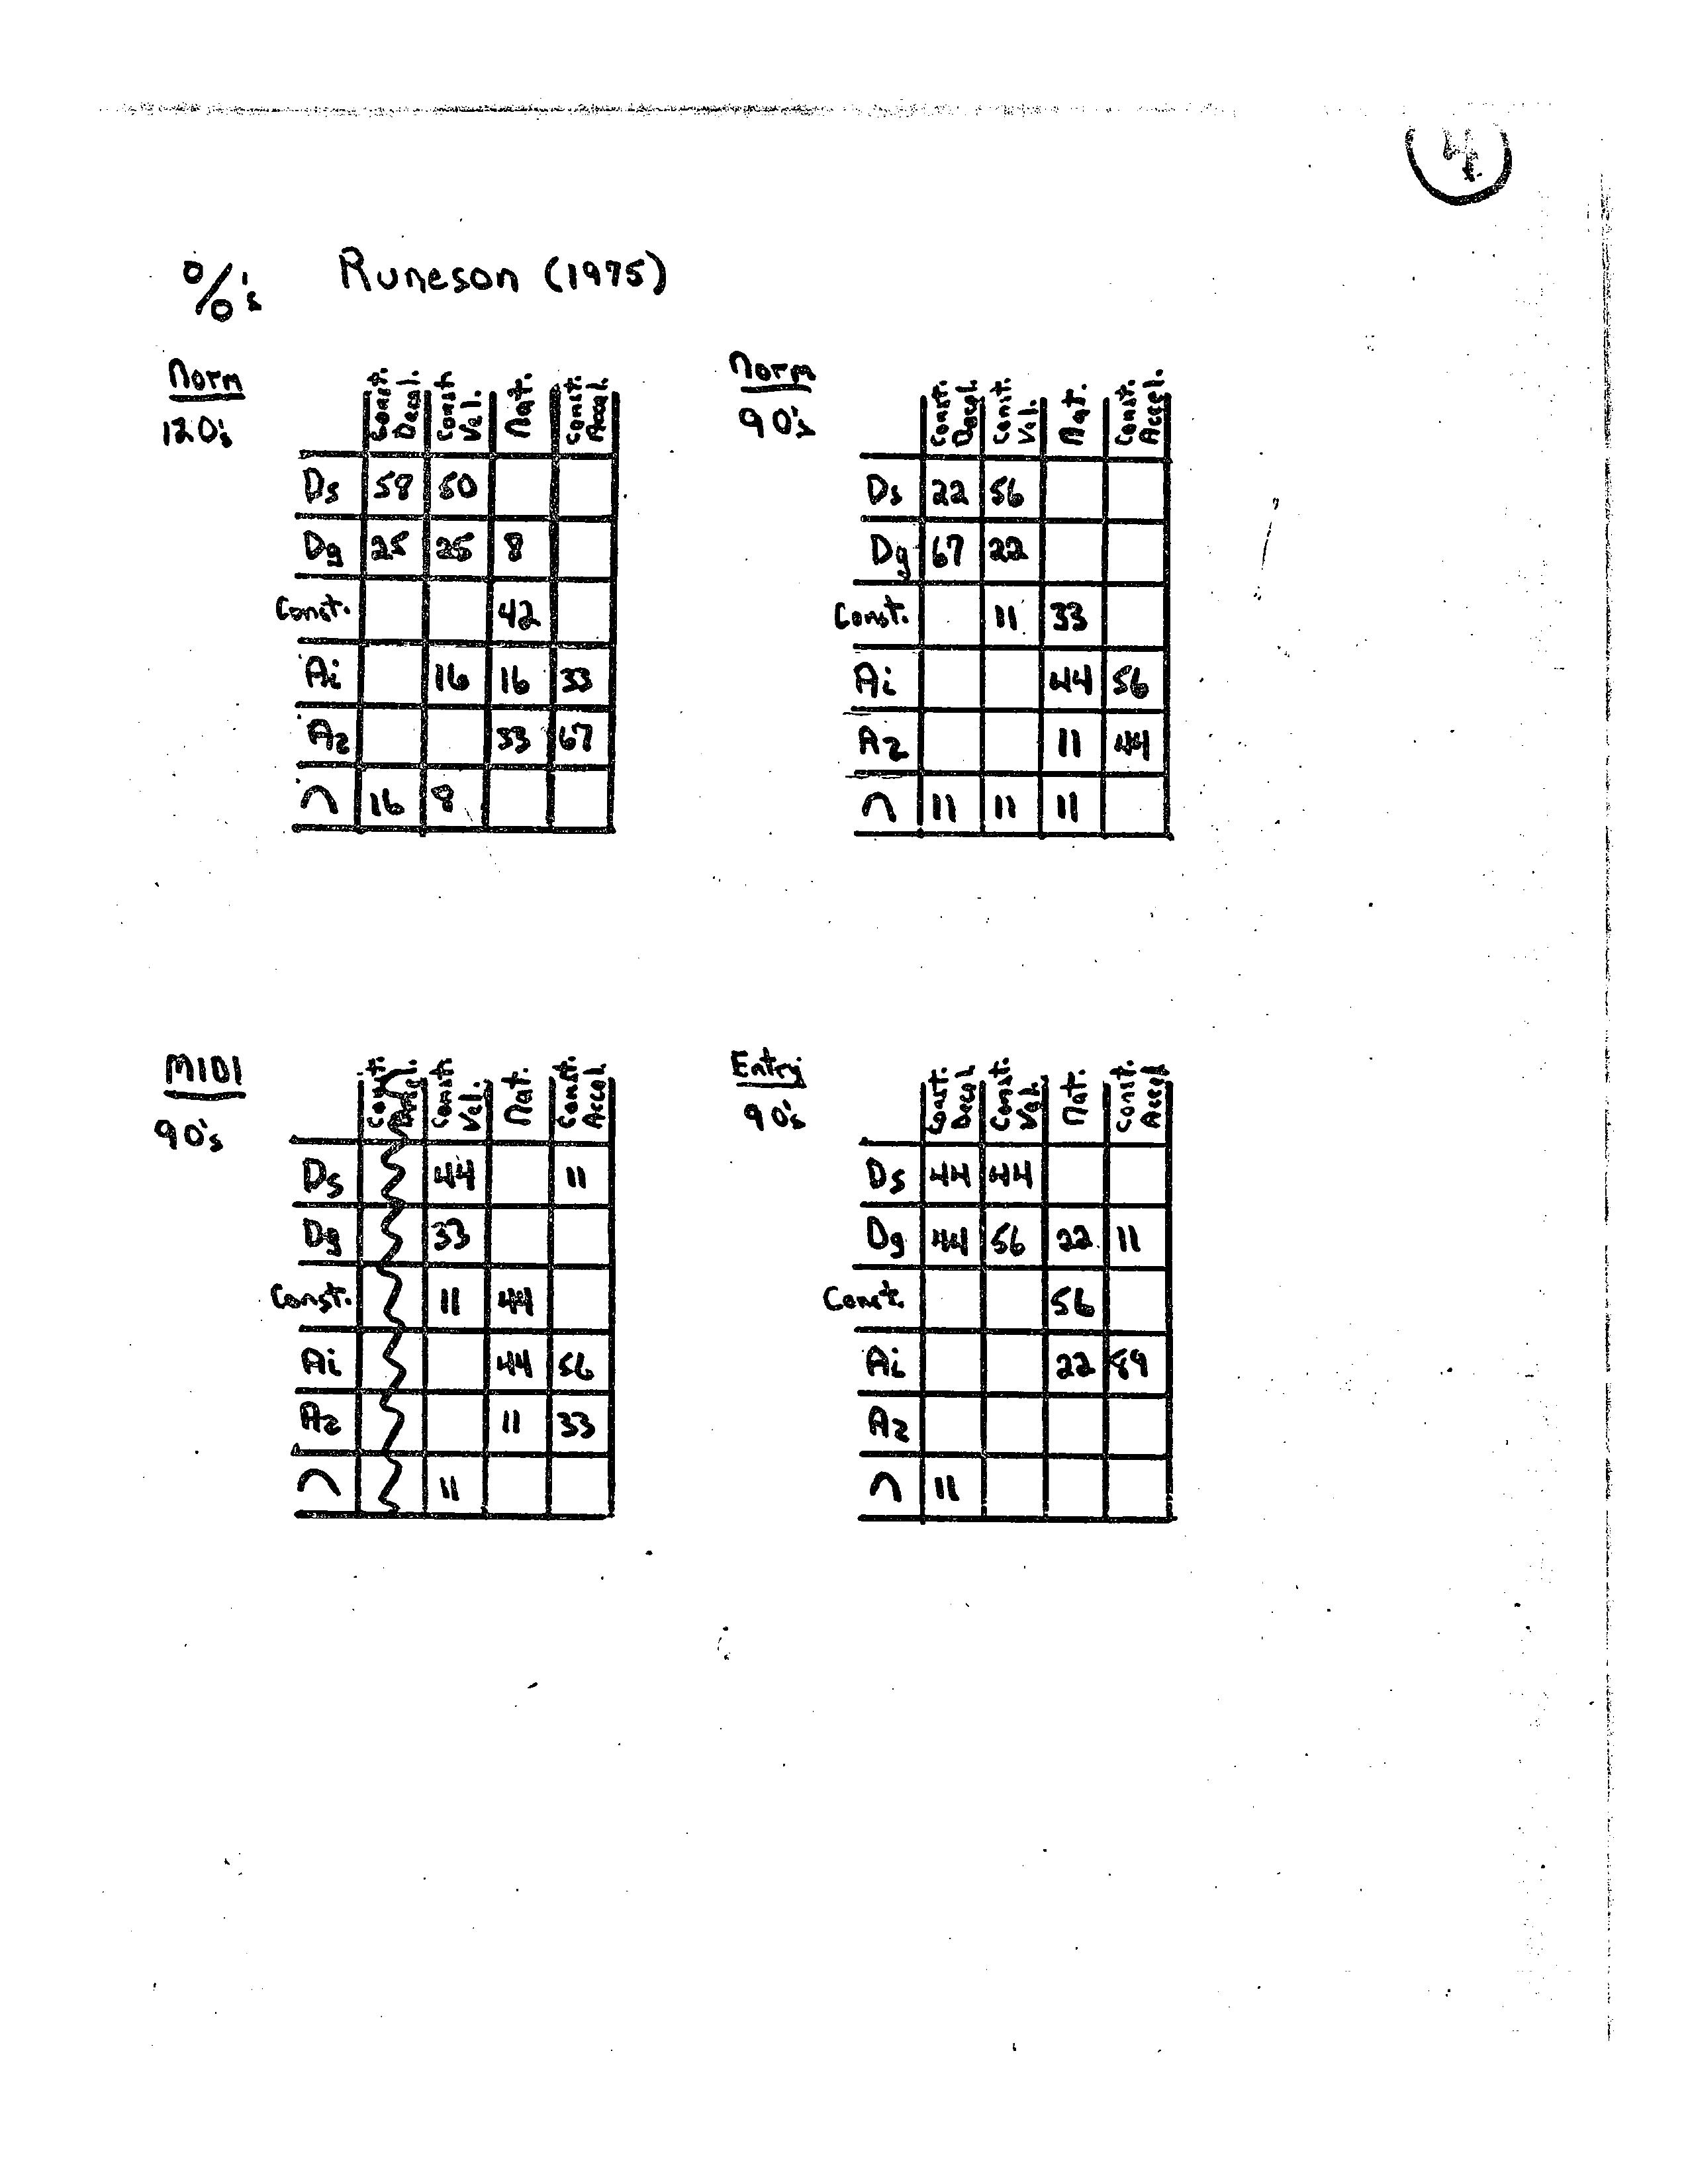 4
%'s Runeson (1975)
Norm
120's
Const. Decel. Const Vel. Nat. Const. Accel.
Ds 58 50
Dg 25 25 8
Const. 42
Ai 16 16 33
A2 33 67
∩ 16 8
Norm
90's
Const. Decel. Const. Vel. Nat. Const. Accel.
Ds 22 56
Dg 67 22
Const. 11 33
Ai 44 56
A2 11 44
∩ 11 11 11
MIDI
90's
Const. Decel. Const. Vel. Nat. Const. Accel.
Ds 44 11
Dg 33
Const. 11 44
Ai 44 56
A2 11 33
∩ 11
Entry
90's
Const. Decel Const. Vel. Nat. Const. Accel
Ds 44 44
Dg 44 56 22 11
Const. 56
Ai 22 89
A2
∩ 11